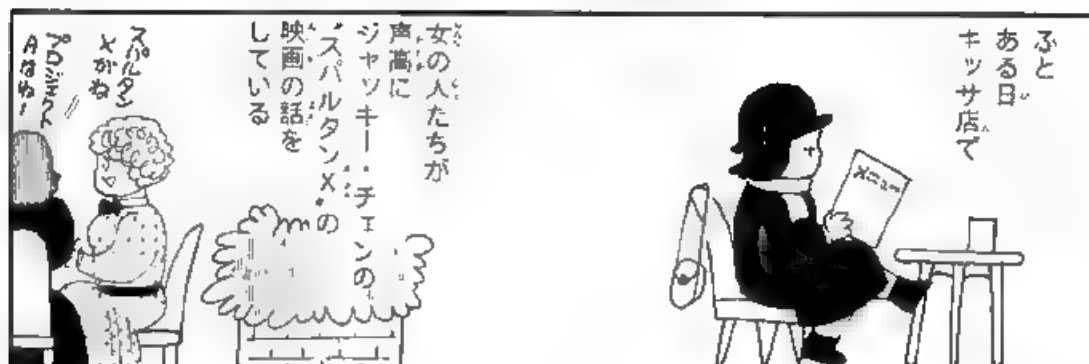 ふと
ある日
キッサ店で
メニュー
女の人たちが
声高に
ジャッキー・チェンの
〝スパルタンX〟の
映画の話を
している
スパルタン
Xがね
プロジェクト
Aはね!